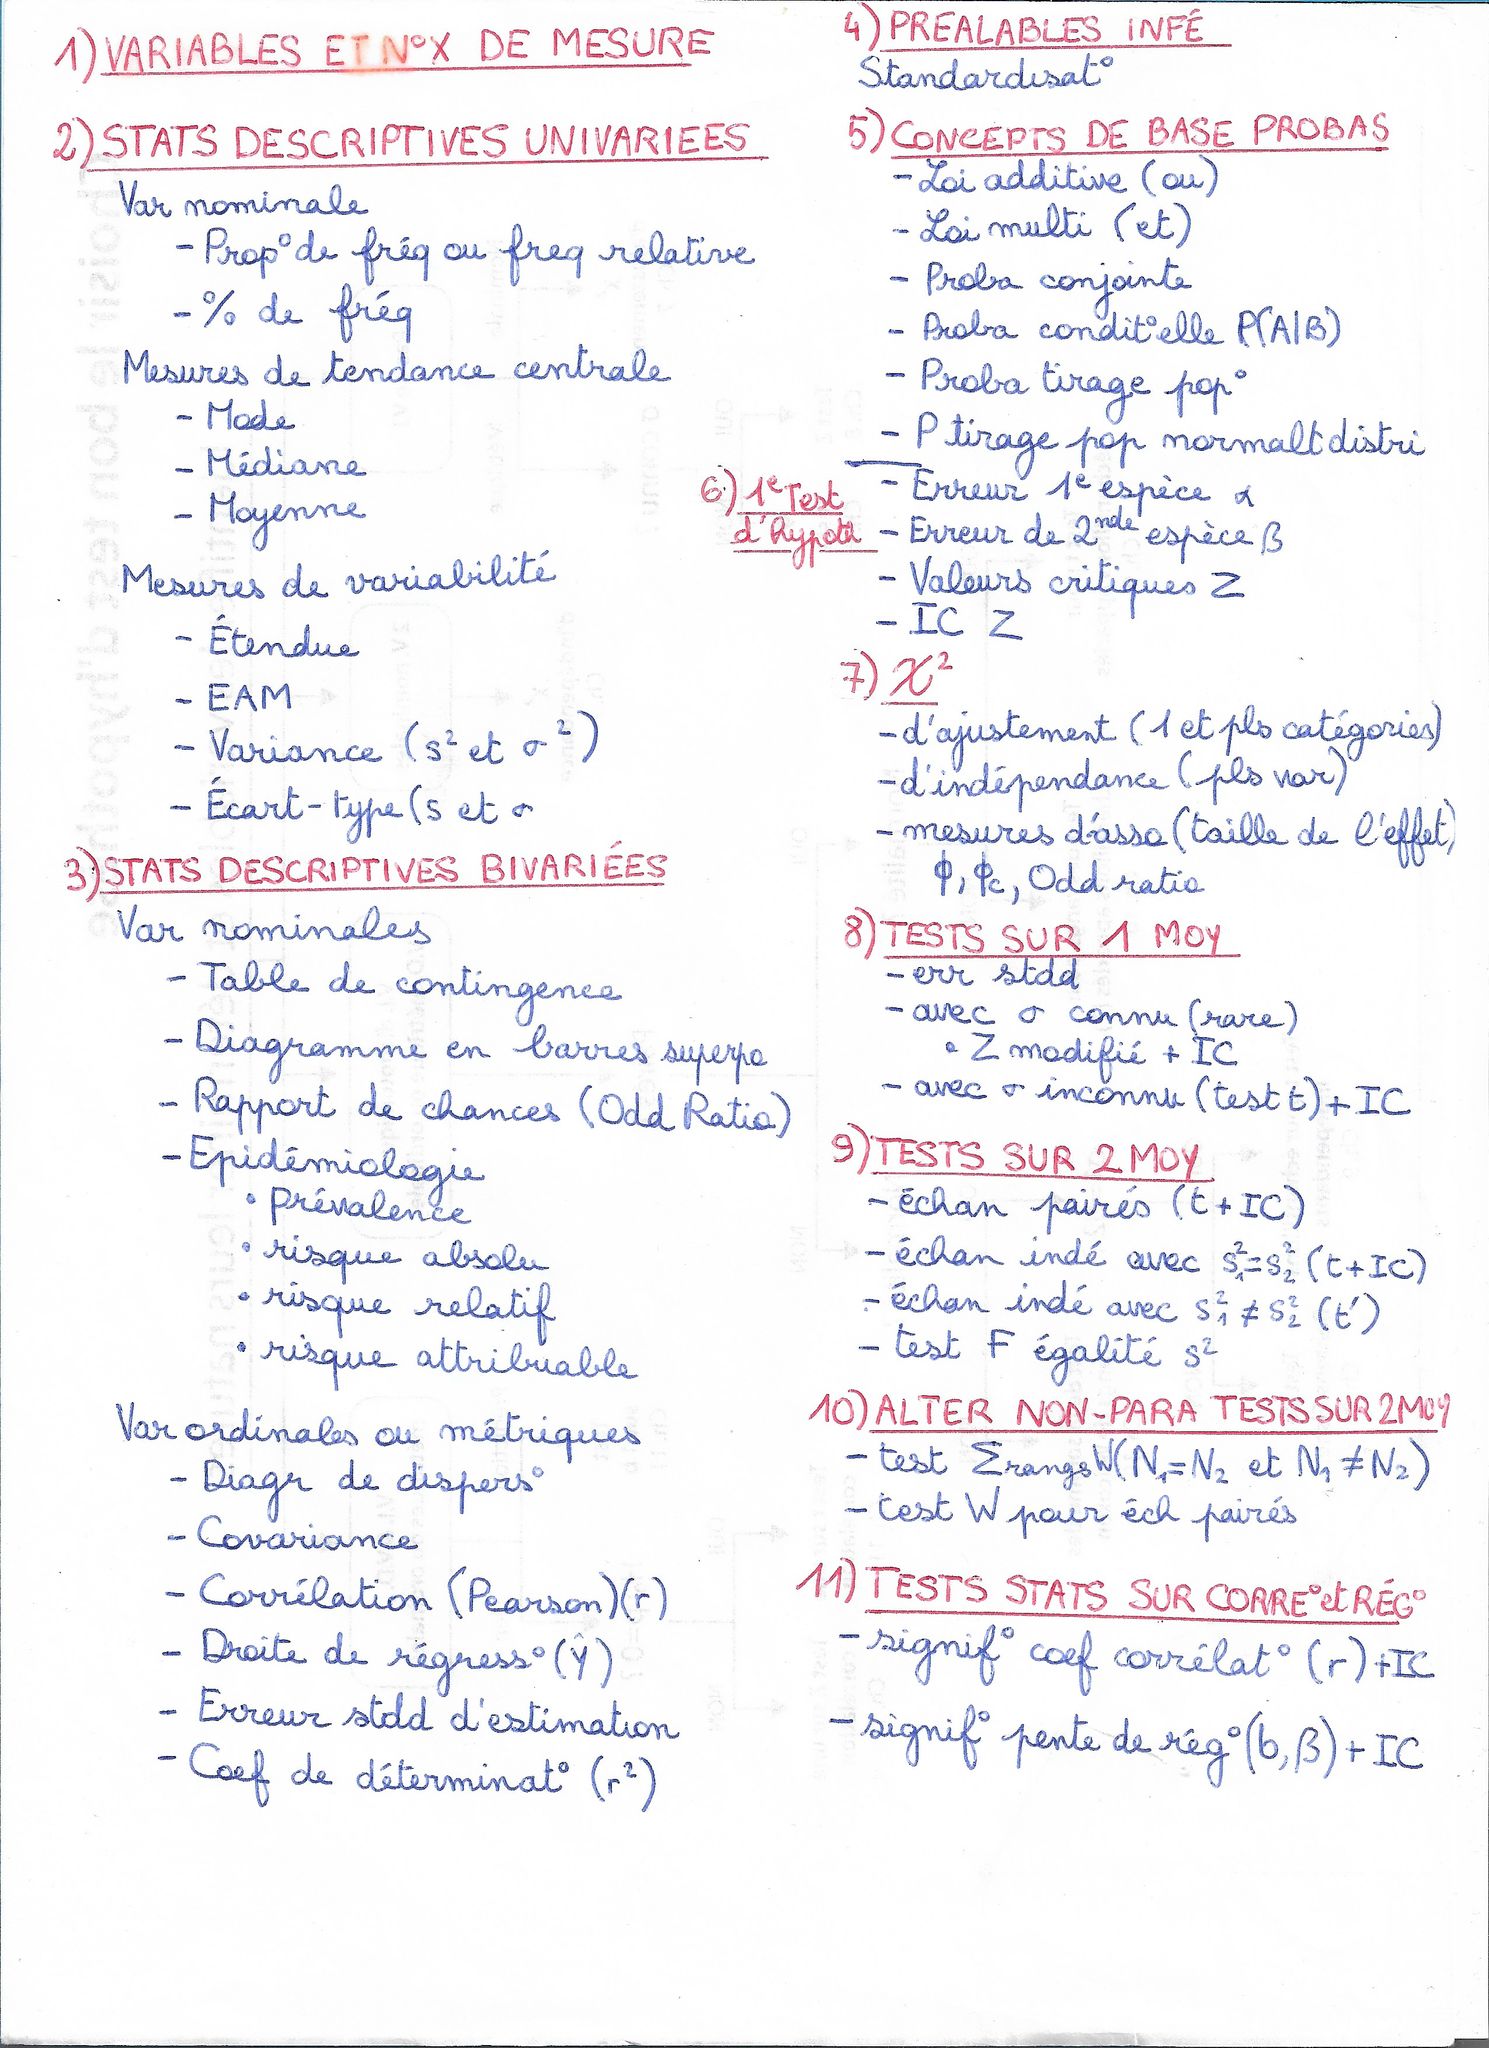 1) VARIABLES ET N°X DE MESURE
2) STATS DESCRIPTIVES UNIVARIEES
Var nominale
- Prop° de fréq ou freq relative
- % de fréq
Mesures de tendance centrale
- Mode
- Médiane
- Moyenne
Mesures de variabilité
- Étendue
- EAM
- Variance (s² et σ²)
- Écart-type (s et σ
3) STATS DESCRIPTIVES BIVARIÉES
Var nominales
- Table de contingence
- Diagramme en barres superpo
- Rapport de chances (Odd Ratio)
- Epidémiologie
• prévalence
• risque absolu
• risque relatif
• risque attribuable
Var ordinales ou métriques
- Diagr de dispers°
- Covariance
- Corrélation (Pearson)(r)
- Droite de régress° (Ŷ)
- Erreur stdd d'estimation
- Coef de déterminat° (r²)
4) PREALABLES INFÉ
Standardisat°
5) CONCEPTS DE BASE PROBAS
- Loi additive (ou)
- Loi multi (et)
- Proba conjointe
- Proba condit°elle P(A|B)
- Proba tirage pop°
- P tirage pop normalt distri
6) 1e Test
d'hypoth
- Erreur 1e espèce α
- Erreur de 2nde espèce β
- Valeurs critiques Z
- IC Z
7) χ²
- d'ajustement (1 et pls catégories)
- d'indépendance (pls var)
- mesures d'asso (taille de l'effet)
ϕ, ϕc, Odd ratio
8) TESTS SUR 1 MOY
- err stdd
- avec σ connu (rare)
• Z modifié + IC
- avec σ inconnu (test t) + IC
9) TESTS SUR 2 MOY
- échan pairés (t + IC)
- échan indé avec s₁² = s₂² (t + IC)
- échan indé avec s₁² ≠ s₂² (t')
- test F égalité s²
10) ALTER NON-PARA TESTS SUR 2 MOY
- test Σrangs W (N₁=N₂ et N₁≠N₂)
- test W pour éch pairés
11) TESTS STATS SUR CORRE° et RÉG°
- signif° coef corrélat° (r) + IC
- signif° pente de rég° (b, β) + IC